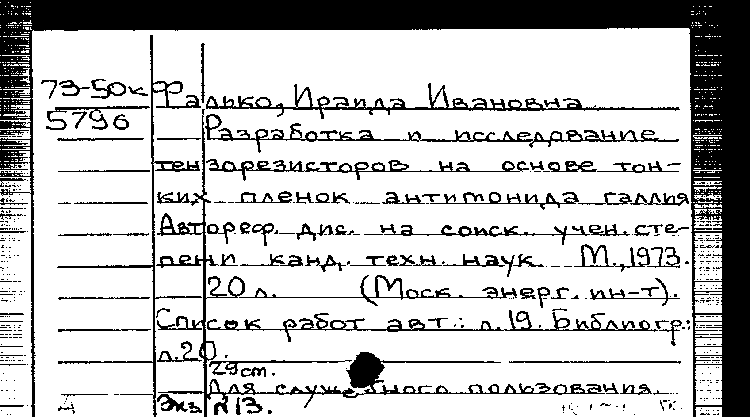 73-50к Фалько, Ираида Ивановна
5796 Разработка и исследование
тензорезисторов на основе тон-
ких пленок антимонида галлия
Автореф. дис. на соиск. учен. сте-
пени канд. техн. наук. М., 1973.
20 л. (Моск. энерг. ин-т).
Список работ авт.: л. 19. Библиогр.:
л. 20.
29 см.
Для служебного пользования.
Экз. №13.